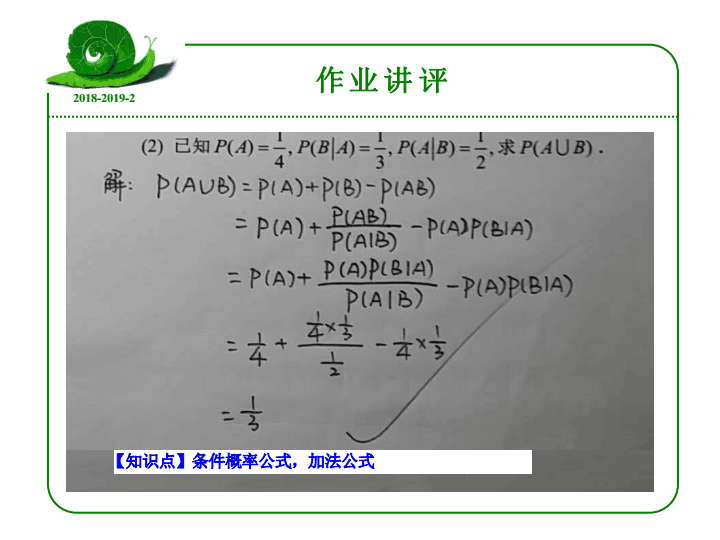 作业讲评
2018-2019-2
(2) 已知 P(A) = 1/4, P(B|A) = 1/3, P(A|B) = 1/2, 求 P(A∪B).
解: P(A∪B) = P(A)+P(B)-P(AB)
= P(A) + P(AB)/P(A|B) - P(A)P(B|A)
= P(A)+ P(A)P(B|A)/P(A|B) - P(A)P(B|A)
= 1/4 + (1/4×1/3)/(1/2) - 1/4×1/3
= 1/3
【知识点】条件概率公式，加法公式